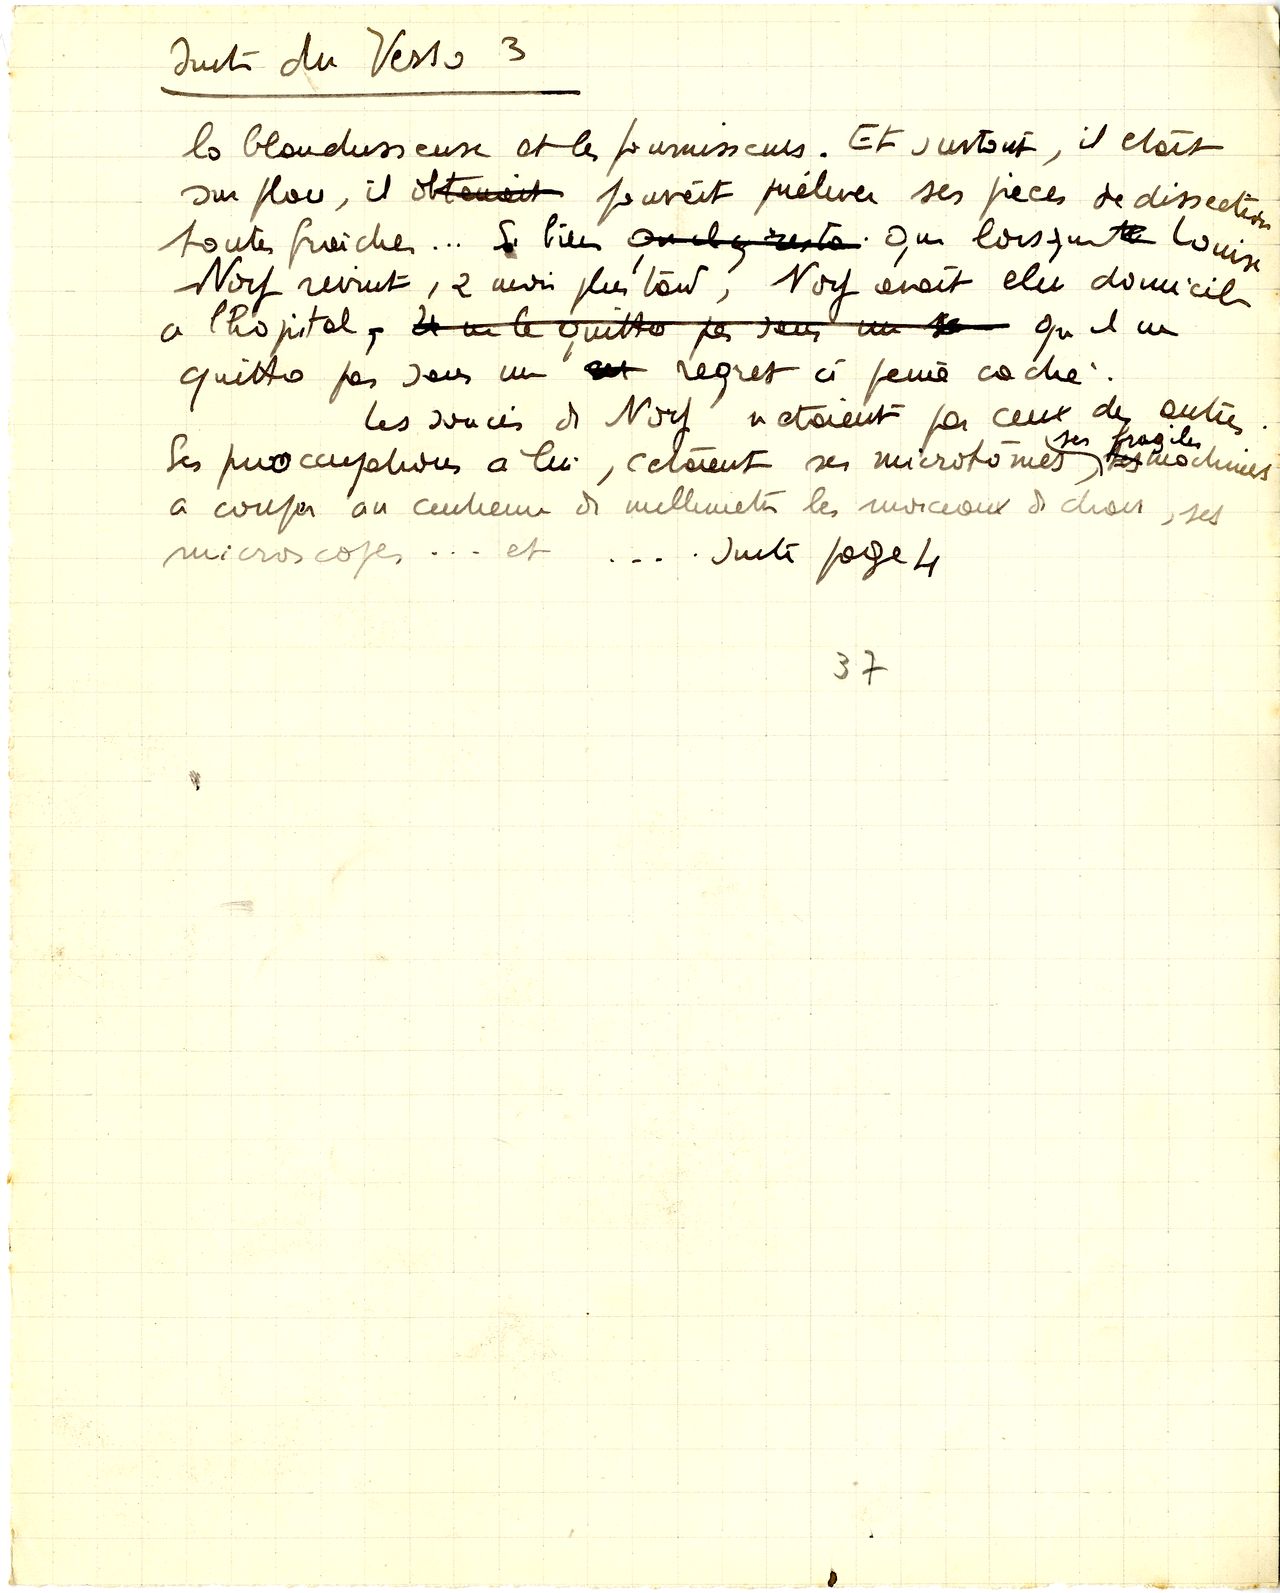 Suite du Verso 3
la blanchisseuse et les fournisseurs. Et surtout, il etait
sur place, il obtenait pouvait prélever ses pièces de dissection
toutes fraiches... Si bien qu il y resta. Que lorsque Louise
Norf revint, 2 mois plus tard, Norf avait elu domicile
a l'hopital, Il ne le quitta pas sans un qu il ne
quitta pas sans un regret à peine caché.
Les soucis de Norf n etaient pas ceux des autres.
Ses préoccupations a lui, cetaient ses microtomes, ses fragiles machines
a couper au centieme de millimetre les morceaux de chair, ses
microscopes ... et .... Suite page 4
37